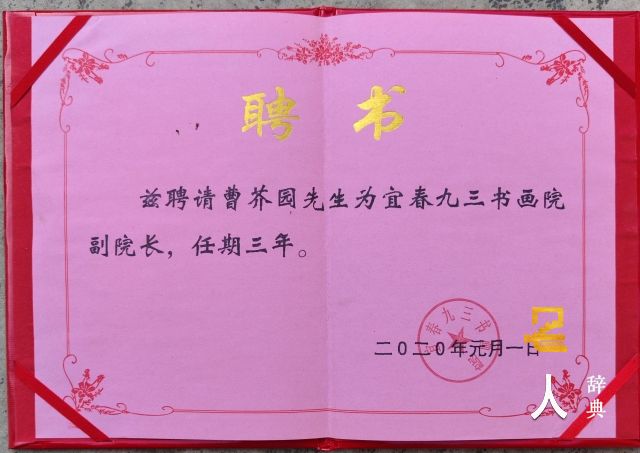 聘书
兹聘请曹芥园先生为宜春九三书画院
副院长，任期三年。
宜春九三书画院
二0二0年元月一日
人
辞典